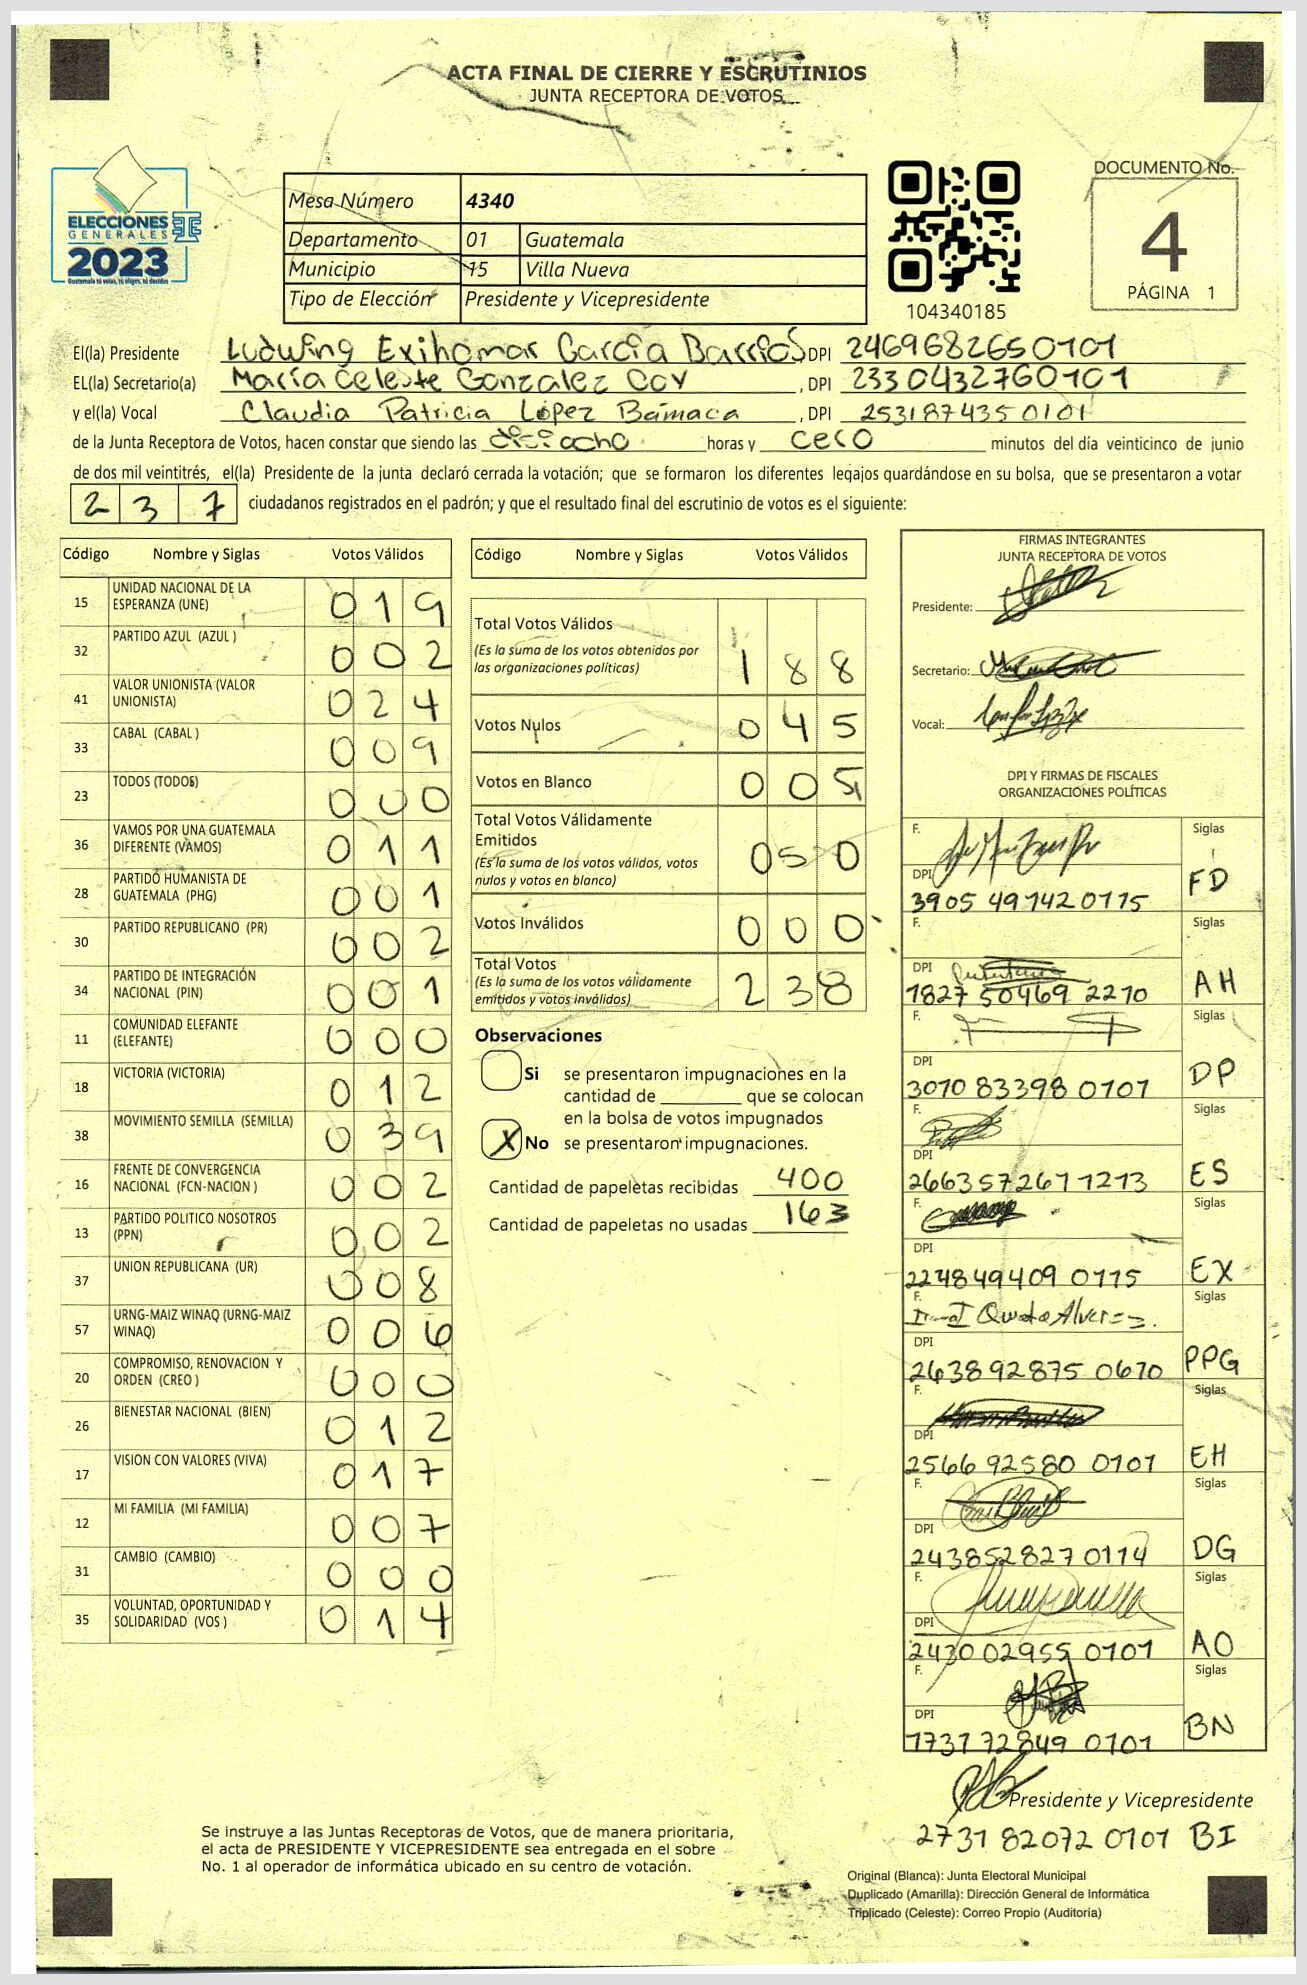 ACTA FINAL DE CIERRE Y ESCRUTINIOS
JUNTA RECEPTORA DE VOTOS
ELECCIONES
GENERALES
2023
Guatemala tú votas, tú eliges, tú decides
Mesa Número 4340
Departamento 01 Guatemala
Municipio 15 Villa Nueva
Tipo de Elección Presidente y Vicepresidente
104340185
DOCUMENTO No.
4
PÁGINA 1
El(la) Presidente Ludwing Exihomar García Barrios DPI 2469682650101
EL(la) Secretario(a) María Celeste Gonzalez Coy , DPI 2330432760101
y el(la) Vocal Claudia Patricia López Bámaca , DPI 2531874350101
de la Junta Receptora de Votos, hacen constar que siendo las diciocho horas y cero minutos del día veinticinco de junio
de dos mil veintitrés, el(la) Presidente de la junta declaró cerrada la votación; que se formaron los diferentes legajos guardándose en su bolsa, que se presentaron a votar
237 ciudadanos registrados en el padrón; y que el resultado final del escrutinio de votos es el siguiente:
Código Nombre y Siglas Votos Válidos
15 UNIDAD NACIONAL DE LA ESPERANZA (UNE) 019
32 PARTIDO AZUL (AZUL ) 002
41 VALOR UNIONISTA (VALOR UNIONISTA) 024
33 CABAL (CABAL ) 009
23 TODOS (TODOS) 000
36 VAMOS POR UNA GUATEMALA DIFERENTE (VAMOS) 011
28 PARTIDO HUMANISTA DE GUATEMALA (PHG) 001
30 PARTIDO REPUBLICANO (PR) 002
34 PARTIDO DE INTEGRACIÓN NACIONAL (PIN) 001
11 COMUNIDAD ELEFANTE (ELEFANTE) 000
18 VICTORIA (VICTORIA) 012
38 MOVIMIENTO SEMILLA (SEMILLA) 039
16 FRENTE DE CONVERGENCIA NACIONAL (FCN-NACION ) 002
13 PARTIDO POLITICO NOSOTROS (PPN) 002
37 UNION REPUBLICANA (UR) 008
57 URNG-MAIZ WINAQ (URNG-MAIZ WINAQ) 006
20 COMPROMISO, RENOVACION Y ORDEN (CREO ) 000
26 BIENESTAR NACIONAL (BIEN) 012
17 VISION CON VALORES (VIVA) 017
12 MI FAMILIA (MI FAMILIA) 007
31 CAMBIO (CAMBIO) 000
35 VOLUNTAD, OPORTUNIDAD Y SOLIDARIDAD (VOS ) 014
Código Nombre y Siglas Votos Válidos
Total Votos Válidos 188
(Es la suma de los votos obtenidos por
las organizaciones políticas)
Votos Nulos 045
Votos en Blanco 005
Total Votos Válidamente
Emitidos 050
(Es la suma de los votos válidos, votos
nulos y votos en blanco)
Votos Inválidos 000
Total Votos 238
(Es la suma de los votos válidamente
emitidos y votos inválidos)
Observaciones
Si se presentaron impugnaciones en la
cantidad de ________ que se colocan
en la bolsa de votos impugnados
X No se presentaron impugnaciones.
Cantidad de papeletas recibidas 400
Cantidad de papeletas no usadas 163
FIRMAS INTEGRANTES
JUNTA RECEPTORA DE VOTOS
Presidente:
Secretario:
Vocal:
DPI Y FIRMAS DE FISCALES
ORGANIZACIONES POLÍTICAS
F. Siglas
DPI 3905 49742 0115 FD
F. Siglas
DPI 1827 50469 2210 AH
F. Siglas
DPI 3070 83398 0101 DP
F. Siglas
DPI 2663572671213 ES
F. Siglas
DPI 224849409 0115 EX
F. Siglas
DPI 263892875 0610 PPG
F. Siglas
DPI 2566 92580 0101 EH
F. Siglas
DPI 243852827 0114 DG
F. Siglas
DPI 2430 02955 0101 AO
F. Siglas
DPI 1731 72849 0101 BN
Presidente y Vicepresidente
2731 82072 0101 BI
Se instruye a las Juntas Receptoras de Votos, que de manera prioritaria,
el acta de PRESIDENTE Y VICEPRESIDENTE sea entregada en el sobre
No. 1 al operador de informática ubicado en su centro de votación.
Original (Blanca): Junta Electoral Municipal
Duplicado (Amarilla): Dirección General de Informática
Triplicado (Celeste): Correo Propio (Auditoría)